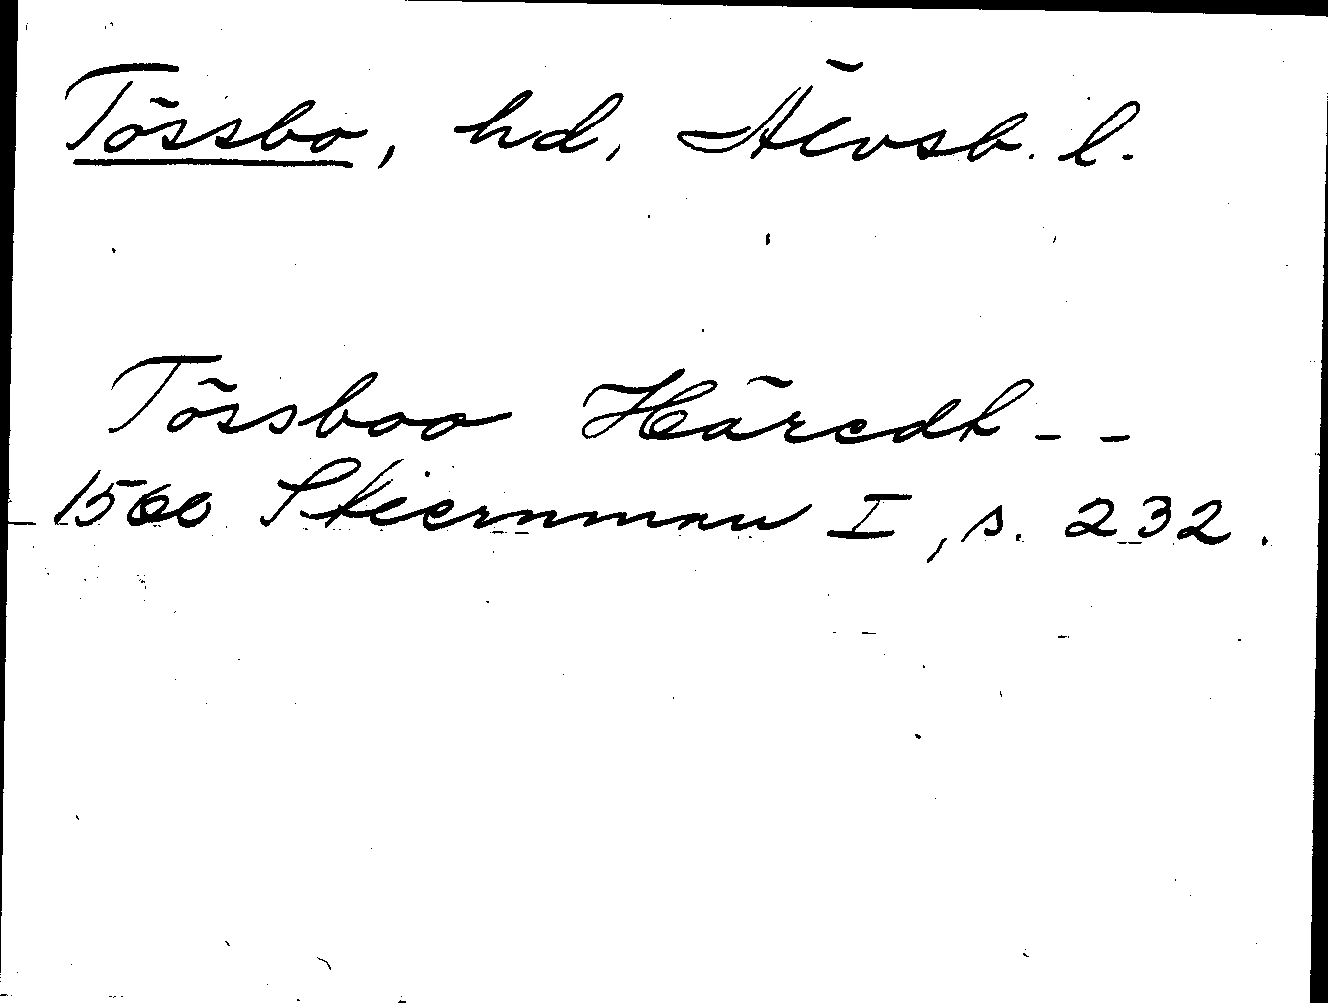 Tössbo, hd, Älvsb. l.
Tössboo Häredh - -
1560 Stiernman I, s. 232.